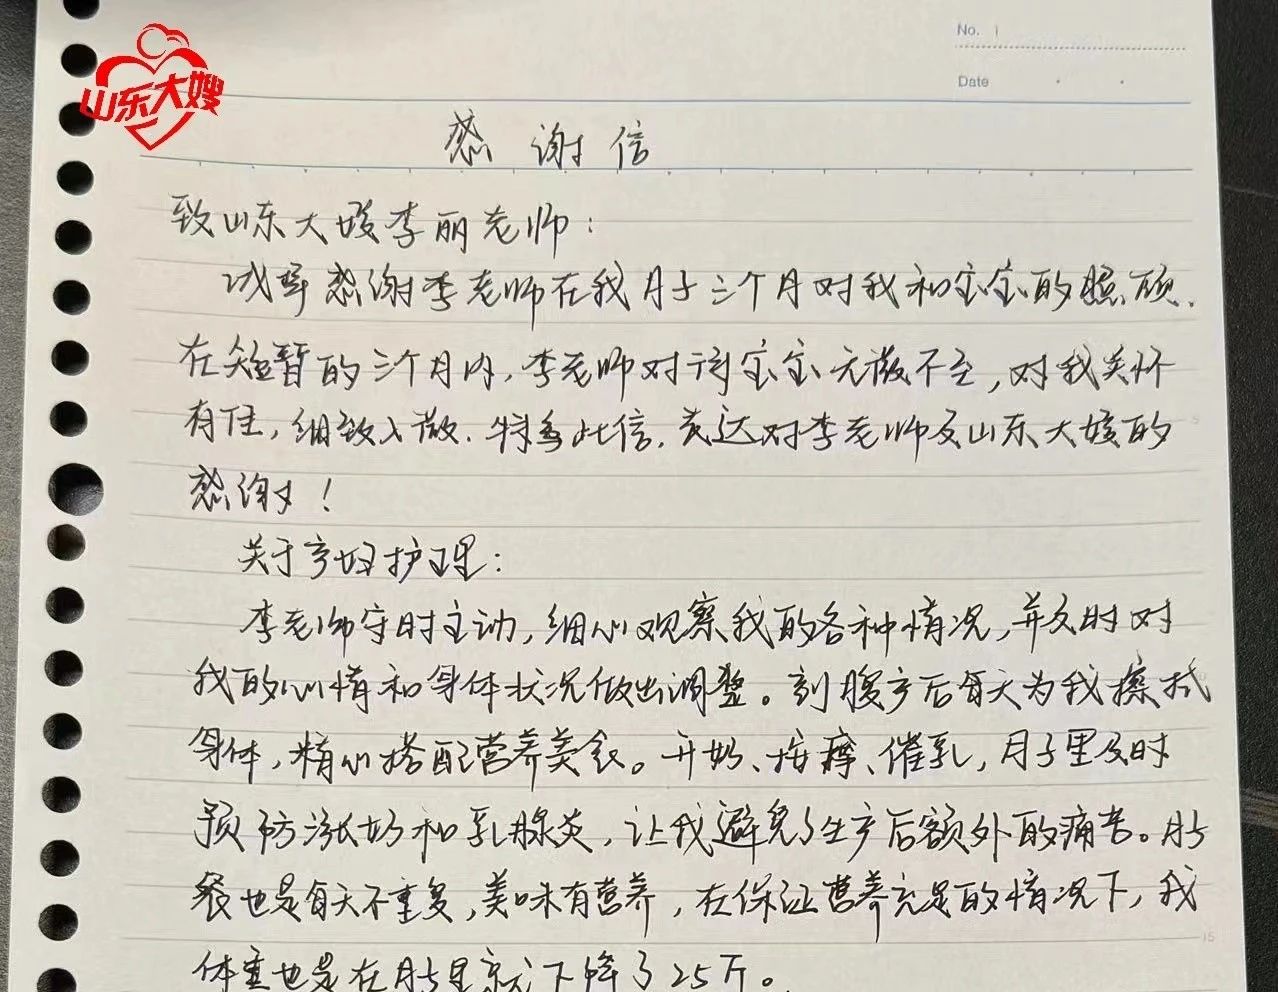 No. 1
山东大嫂
Date
感谢信
致山东大嫂李丽老师：
诚挚感谢李老师在我月子三个月对我和宝宝的照顾.
在短暂的三个月内，李老师对待宝宝无微不至，对我关怀
有佳，细致入微.特写此信.表达对李老师及山东大嫂的
感谢！
关于产妇护理：
李老师守时主动，细心观察我的各种情况，并及时对
我的心情和身体状况做出调整。剖腹产后每天为我擦拭
身体，精心搭配营养美食。开奶、按摩、催乳，月子里及时
预防涨奶和乳腺炎，让我避免了生产后额外的痛苦。月子
餐也是每天不重复，美味有营养，在保证营养充足的情况下，我
15
体重也是在月子里就下降了25斤。